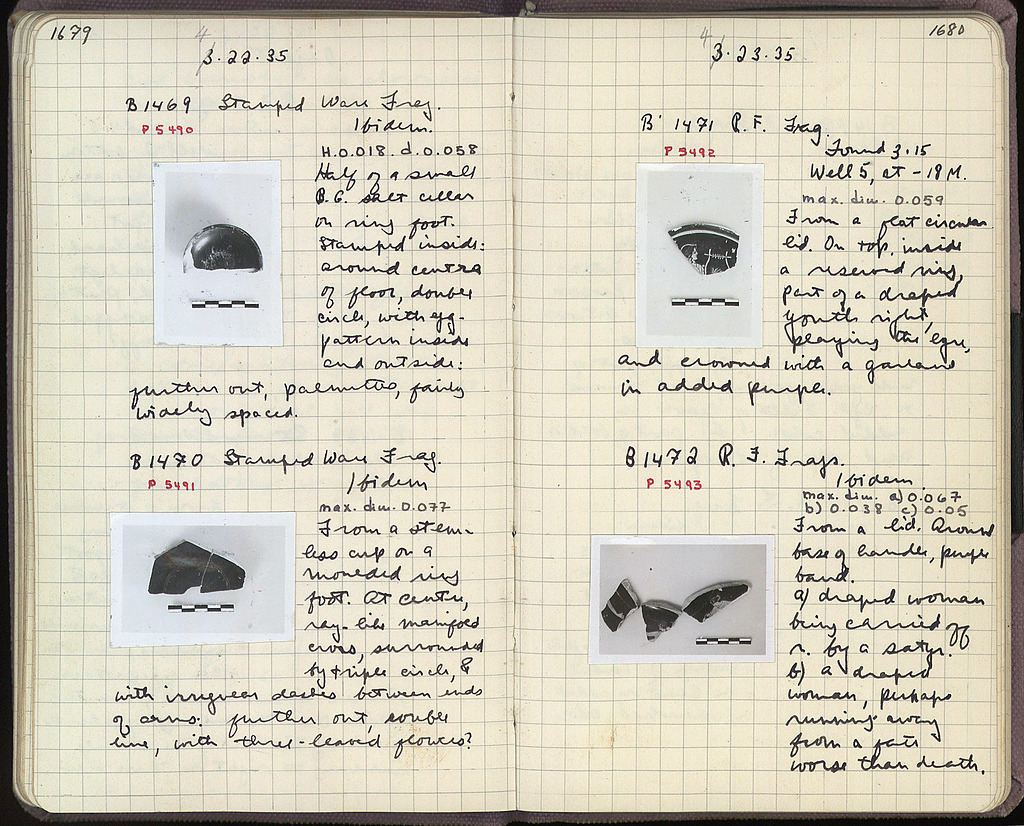 1679
4
3.22.35
B 1469 Stamped Ware Frag.
P 5490
Ibidem.
H.0.018. d.0.058
Half of a small
B.G. salt cellar
on ring foot.
Stamped inside:
around centre
of floor, double
circle, with egg-
pattern inside
and outside:
further out, palmettes, fairly
widely spaced.
B 1470 Stamped Ware Frag.
P 5491
Ibidem
max. dim. 0.077
From a stem-
less cup on a
moulded ring
foot. At centre,
ray-like manifold
cross, surrounded
by triple circle, &
with irregular dashes between ends
of arms: further out, double
line, with three-leaved flowers?
1680
4
3.23.35
B 1471 R.F. Frag.
P 5492
Found 3.15
Well 5, at -19 M.
max. dim. 0.059
From a flat circular
lid. On top, inside
a reserved ring,
part of a draped
youth right,
playing the lyre,
and crowned with a garland
in added purple.
B 1472 R. F. Frags.
P 5493
Ibidem
max. dim. a) 0.067
b) 0.038 c) 0.05
From a lid. Around
base of handle, purple
band.
a) draped woman
being carried off
r. by a satyr.
b) a draped
woman, perhaps
running away
from a fate
worse than death.